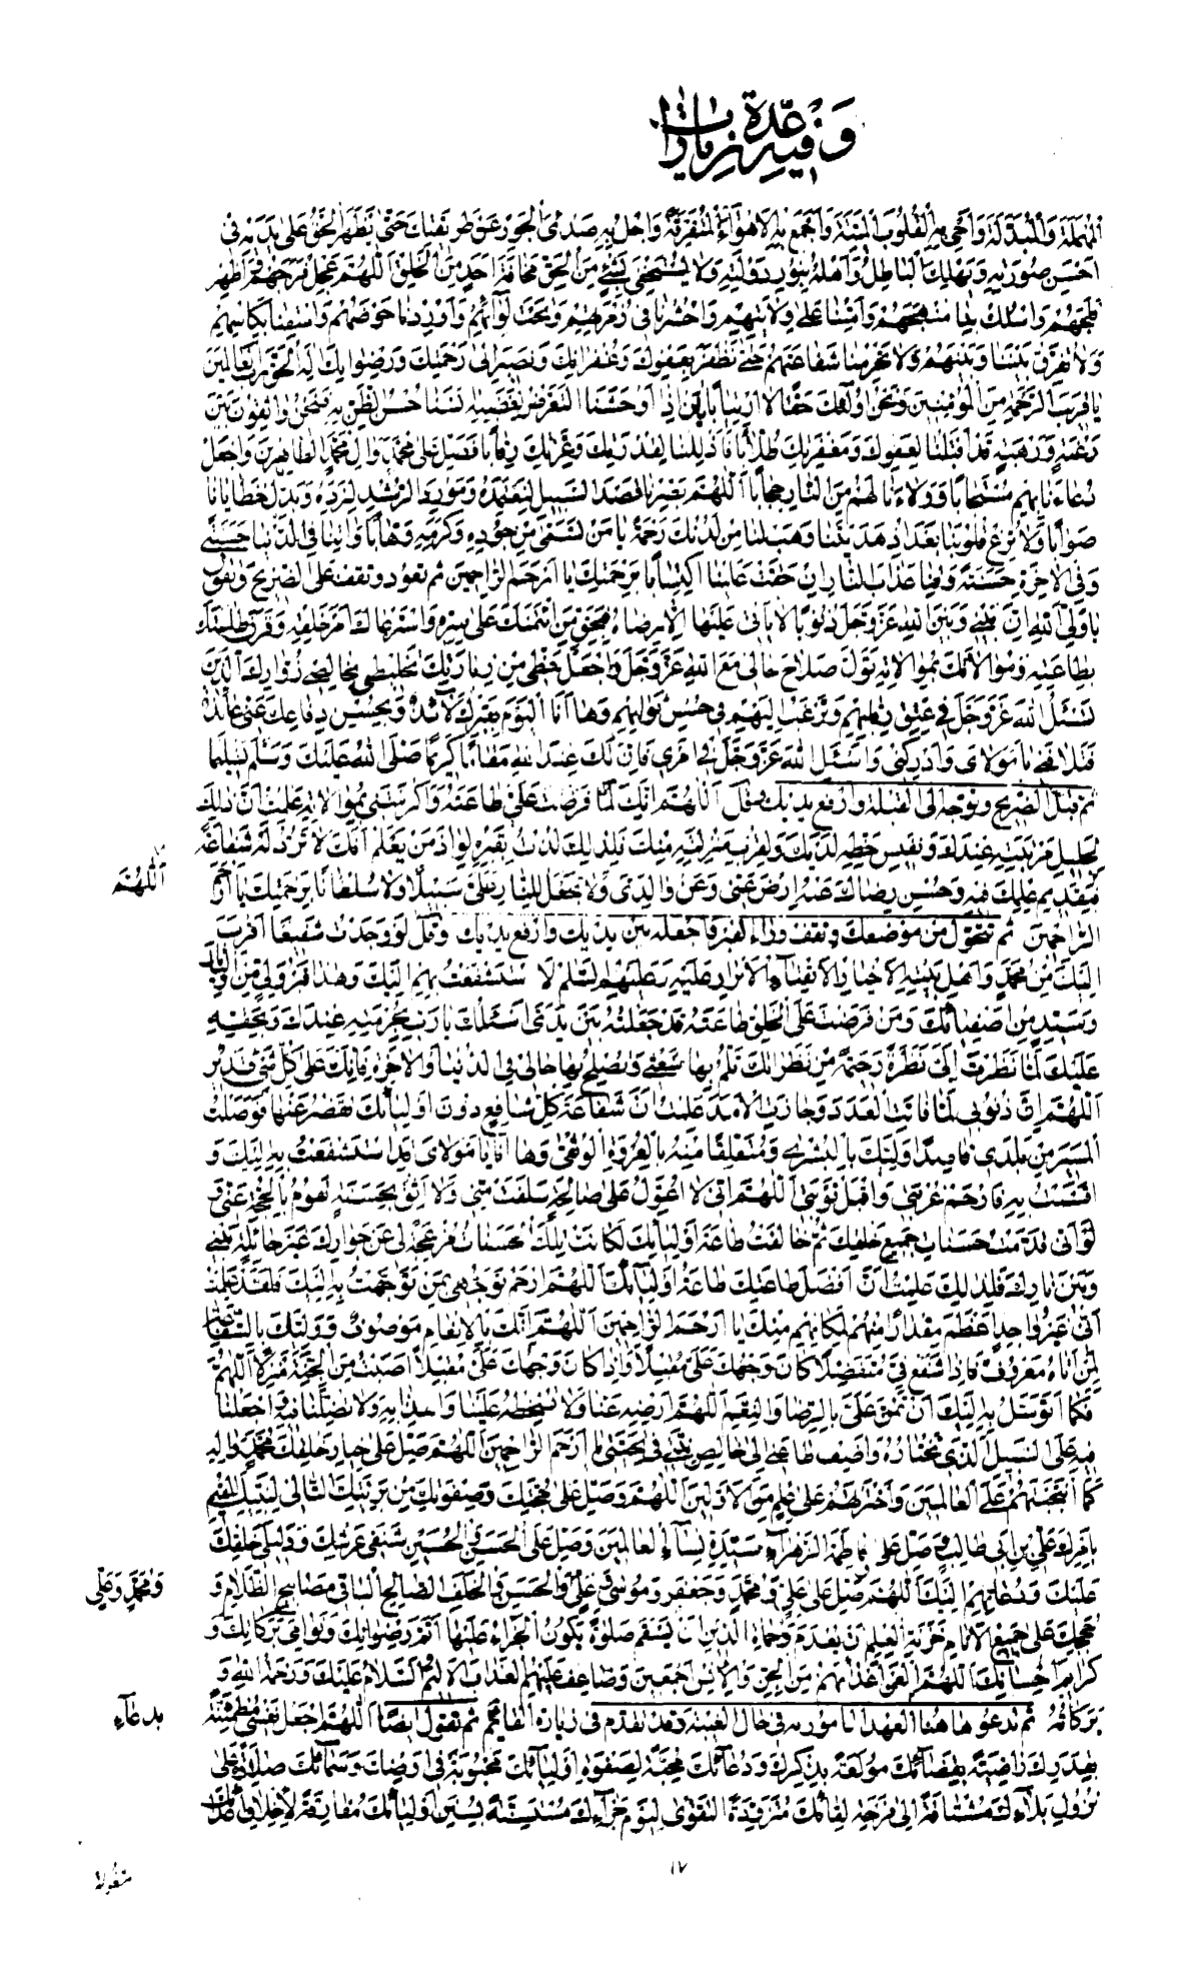 وَفيهِ عدّة زيادات
المُهمَلَةَ وَالمُبَدَّلَةَ وَاَحْيِ بِهِ القُلُوبَ المَيِّتَةَ وَاجْمَعْ بِهِ الاَهْوٰاءَ المُتَفَرِّقَةَ وَاجْلُ بِهِ صَدٰی الجَورِ عَنْ طَريقَتِكَ حَتّىٰ يَظْهَرَ الحَقُّ عَلىٰ يَدَيْهِ فى
اَحْسَنِ صُورَتِهِ وَيَهْلِكَ البٰاطِلُ وَاَهْلُهُ بِنُورِ دَوْلَتِهِ وَلا يَسْتَخْفىَ بِشَىْءٍ مِنَ الحَقِّ مَخٰافَةَ اَحَدٍ مِنَ الخَلْقِ اَللّهُمَّ عَجِّلْ فَرَجَهُمْ وَاَظْهِرْ
فَلَجَهُمْ وَاسْلُكْ بِنٰا مَنْهَجَهُمْ وَاَمِتْنٰا عَلىٰ وِلاٰيَتِهِمْ وَاحْشُرْنٰا فى زُمْرَتِهِمْ وَتَحْتَ لِوٰائِهِمْ وَاَوْرِدْنٰا حَوْضَهُمْ وَاسْقِنٰا بِكَاْسِهِمْ
وَلا تُفَرِّقْ بَيْنَنٰا وَبَيْنَهُمْ وَلا تَحْرِمْنٰا شَفٰاعَتَهُمْ حَتّىٰ نَظْفَرَ بِعَفْوِكَ وَغُفْرٰانِكَ وَنَصيرَ اِلىٰ رَحْمَتِكَ وَرِضْوٰانِكَ اِلٰهَ الحَقِّ رَبَّ العٰالَمينَ
يٰا قَريبَ الرَّحْمَةِ مِنَ المُؤْمِنينَ وَنَحْنُ اُولٰئِكَ حَقّاً لاَ ارْتِيٰاباً يٰا مَنْ اِذٰا اَوْحَشَنَا التَّعَرُّضُ لِغَضَبِهِ آنَسَنٰا حُسْنُ الظَّنِّ بِهِ فَنَحْنُ وٰاثِقُونَ بَيْنَ
رَغْبَةٍ وَرَهْبَةٍ قَدْ اَقْبَلْنٰا لِعَفْوِكَ وَمَغْفِرَتِكَ طُلّٰاباً فَاَذْلَلْنٰا لِقُدْرَتِكَ وَعِزَّتِكَ رِقٰاباً فَصَلِّ عَلىٰ مُحَمَّدٍ وَآلِ مُحَمَّدٍ الطّٰاهِرينَ وَاجْعَلْ
دُعٰاءَنٰا بِهِمْ مُسْتَجٰاباً وَوَلاٰءَنٰا لَهُمْ مِنَ النّٰارِ حِجٰاباً اَللّهُمَّ بَصِّرْنٰا قَصْدَ السَّبيلِ لِنَعْتَمِدَهُ وَمَوْرِدَ الرُّشْدِ لِنَرِدَهُ وَبَدِّلْ خَطٰايٰانٰا
صَوٰاباً وَلا تُزِغْ قُلُوبَنٰا بَعْدَ اِذْ هَدَيْتَنٰا وَهَبْ لَنٰا مِنْ لَدُنْكَ رَحْمَةً يٰا مَنْ تَسَمّىٰ مِنْ جُودِهِ وَكَرَمِهِ وَهّٰاباً وَآتِنٰا فِى الدُّنْيٰا حَسَنَةً
وَفِى الآخِرَةِ حَسَنَةً وَقِنٰا عَذٰابَ النّٰارِ اِنْ حَقَّتْ عَلَيْنَا اكْتِسٰاباً بِرَحْمَتِكَ يٰا اَرْحَمَ الرّٰاحِمينَ ثم تعود وتقف على الضريح وتقول
يٰا وَلِىَّ اللهِ اِنَّ بَيْنى وَبَيْنَ اللهِ عَزَّ وَجَلَّ ذُنُوباً لا يَاْتى عَلَيْهٰا اِلاّ رِضٰاهُ فَبِحَقِّ مَنِ ائْتَمَنَكَ عَلىٰ سِرِّهِ وَاسْتَرْعٰاكَ اَمْرَ خَلْقِهِ وَقَرَنَ طٰاعَتَكَ
بِطٰاعَتِهِ وَمُوٰالاٰتَكَ بِمُوٰالاٰتِهِ تَوَلَّ صَلاٰحَ حٰالى مَعَ اللهِ عَزَّ وَجَلَّ وَاجْعَلْ حَظّى مِنْ زِيٰارَتِكَ تَخْليطى بِخٰالِصى زُوّٰارِكَ الَّذينَ
تَسْئَلُ اللهَ عَزَّ وَجَلَّ فى عِتْقِ رِقٰابِهِمْ وَتَرْغَبُ اِلَيْهِ فى حُسْنِ ثَوٰابِهِمْ وَهٰا اَنَا اليَوْمَ بِقَبْرِكَ لاٰئِذٌ وَبِحُسْنِ دِفٰاعِكَ عَنّى عٰائِذٌ
فَتَلاٰفَنى يٰا مَوْلاٰىَ وَاَدْرِكْنى وَاسْئَلِ اللهَ عَزَّ وَجَلَّ فى اَمْرى فَاِنَّ لَكَ عِنْدَ اللهِ مَقٰاماً كَريماً صَلَّى اللهُ عَلَيْكَ وَسَلَّمَ تَسْليماً
ثم قبّل الضريح وتوجّه الى القبلة وارفع يديك وقل اَللّهُمَّ اِنَّكَ لَمّٰا فَرَضْتَ عَلَىَّ طٰاعَتَهُ وَاَكْرَمْتَنى بِمُوٰالاٰتِهِ عَلِمْتُ اَنَّ ذٰلِكَ
لِجَليلِ مَرْتَبَتِهِ عِنْدَكَ وَنَفيسِ حَظِّهِ لَدَيْكَ وَلِقُرْبِ مَنْزِلَتِهِ مِنْكَ فَلِذٰلِكَ لُذْتُ بِقَبْرِهِ لِوٰاذَ مَنْ يَعْلَمُ اَنَّكَ لا تَرُدُّ لَهُ شَفٰاعَةً
اَللّهُمَّ
فَبِقَديمِ عِلْمِكَ فيهِ وَحُسْنِ رِضٰاكَ عَنْهُ اِرْضَ عَنّى وَعَنْ وٰالِدَىَّ وَلا تَجْعَلْ لِلنّٰارِ عَلَىَّ سَبيلاً وَلا سُلْطٰاناً بِرَحْمَتِكَ يٰا اَرْحَمَ
الرّٰاحِمينَ ثم تتحوّل من موضعك وتقف وراء القبر فاجعله بين يديك وارفع يديك وقل لَوْ وَجَدْتُ شَفيعاً اَقْرَبَ
اِلَيْكَ مِنْ مُحَمَّدٍ وَاَهْلِ بَيْتِهِ الاَخْيٰارِ الاَتْقِيٰاءِ الاَبْرٰارِ عَلَيْهِ وَعَلَيْهِمُ السَّلٰمُ لاَسْتَشْفَعْتُ بِهِمْ اِلَيْكَ وَهٰذٰا قَبْرُ وَلِىٍّ مِنْ اَوْلِيٰائِكَ
وَسَيِّدٍ مِنْ اَصْفِيٰائِكَ وَمَنْ فَرَضْتَ عَلَى الخَلْقِ طٰاعَتَهُ قَدْ جَعَلْتُهُ بَيْنَ يَدَىَّ اَسْئَلُكَ يٰا رَبِّ بِحُرْمَتِهِ عِنْدَكَ وَبِحَقِّهِ
عَلَيْكَ لَمّٰا نَظَرْتَ اِلَىَّ نَظْرَةً رَحيمَةً مِنْ نَظَرٰاتِكَ تَلُمُّ بِهٰا شَعَثى وَتُصْلِحُ بِهٰا حٰالى فِى الدُّنْيٰا وَالآخِرَةِ فَاِنَّكَ عَلىٰ كُلِّ شَىْءٍ قَديرٌ
اَللّهُمَّ اِنَّ ذُنُوبى لَمّٰا فٰاتَتِ العَدَدَ وَجٰازَتِ الاَمَدَ عَلِمْتُ اَنَّ شَفٰاعَةَ كُلِّ شٰافِعٍ دُونَ اَوْلِيٰائِكَ تَقْصُرُ عَنْهٰا فَوَصَلْتُ
المَسيرَ مِنْ بَلَدى قٰاصِداً وَلِيَّكَ بِالبُشْرىٰ وَمُتَعَلِّقاً مِنْهُ بِالعُرْوَةِ الوُثْقىٰ وَهٰا اَنَا يٰا مَوْلاٰىَ قَدِ اسْتَشْفَعْتُ بِهِ اِلَيْكَ وَ
اَقْسَمْتُ بِهِ فَارْحَمْ غُرْبَتى وَاقْبَلْ تَوْبَتى اَللّهُمَّ اِنّى لا اُعَوِّلُ عَلىٰ صٰالِحَةٍ سَلَفَتْ مِنّى وَلا اَثِقُ بِحَسَنَةٍ تَقُومُ بِالحُجَّةِ عَنّى وَ
لَوْ اَنّى قَدَّمْتُ حَسَنٰاتِ جَميعِ خَلْقِكَ ثُمَّ خٰالَفْتُ طٰاعَةَ اَوْلِيٰائِكَ لَكٰانَتْ تِلْكَ الحَسَنٰاتُ مُزْعِجَةً لى عَنْ جِوٰارِكَ غَيْرَ حٰائِلَةٍ بَيْنى
وَبَيْنَ نٰارِكَ فَلِذٰلِكَ عَلِمْتُ اَنَّ اَفْضَلَ طٰاعَتِكَ طٰاعَةُ اَوْلِيٰائِكَ اَللّهُمَّ ارْحَمْ تَوَجُّهى بِمَنْ تَوَجَّهْتُ بِهِ اِلَيْكَ فَلَقَدْ عَلِمْتَ
اَنّى غَيْرُ وٰاجِدٍ اَعْظَمَ مِقْدٰاراً مِنْهُمْ لِمَكٰانِهِمْ مِنْكَ يٰا اَرْحَمَ الرّٰاحِمينَ اَللّهُمَّ اِنَّكَ بِالاِنْعٰامِ مَوْصُوفٌ وَوَلِيُّكَ بِالشَّفٰاعَةِ
لِمَنْ اَتٰاهُ مَعْرُوفٌ فَاِذٰا شَفَعَ فِىَّ مُتَفَضِّلاً كٰانَ وَجْهُكَ عَلَىَّ مُقْبِلاً وَاِذٰا كٰانَ وَجْهُكَ عَلَىَّ مُقْبِلاً اَصَبْتُ مِنَ الجَنَّةِ مَنْزِلاً اَللّهُمَّ
فَكَمٰا اَتَوَسَّلُ بِهِ اِلَيْكَ اَنْ تَمُنَّ عَلَىَّ بِالرِّضٰا وَالنِّعَمِ اَللّهُمَّ اَرْضِهِ عَنّٰا وَلا تُسْخِطْهُ عَلَيْنٰا وَاهْدِنٰا بِهِ وَلا تُضِلَّنٰا فيهِ وَاجْعَلْنٰا
فيهِ عَلَى السَّبيلِ الَّذى تَخْتٰارُهُ وَاَضِفْ طٰاعَتى اِلىٰ خٰالِصِ نِيَّتى فى تَحِيَّتى يٰا اَرْحَمَ الرّٰاحِمينَ اَللّهُمَّ صَلِّ عَلىٰ خِيٰارِ خَلْقِكَ مُحَمَّدٍ وَآلِهِ
كَمَا انْتَجَبْتَهُمْ عَلَى العٰالَمينَ وَاخْتَرْتَهُمْ عَلىٰ عِلْمٍ مِنَ الاَوَّلينَ اَللّهُمَّ وَصَلِّ عَلىٰ حُجَّتِكَ وَصَفْوَتِكَ مِنْ بَرِيَّتِكَ التّٰالى لِنَبِيِّكَ المُقيمِ
بِاَمْرِكَ عَلِىِّ بْنِ اَبى طٰالِبٍ وَصَلِّ عَلىٰ فٰاطِمَةَ الزَّهْرٰاءِ سَيِّدَةِ نِسٰاءِ العٰالَمينَ وَصَلِّ عَلَى الحَسَنِ وَالحُسَيْنِ شَنَفَىْ عَرْشِكَ وَدَليلَىْ خَلْقِكَ
وَمُحَمَّدٍ وَعَلِىٍّ
عَلَيْكَ وَدُعٰاتِهِمْ اِلَيْكَ اَللّهُمَّ صَلِّ عَلىٰ عَلِىٍّ وَمُحَمَّدٍ وَجَعْفَرٍ وَمُوسىٰ وَعَلِىٍّ وَالحَسَنِ وَالخَلَفِ الصّٰالِحِ البٰاقى مَصٰابيحِ الظَّلاٰمِ وَ
حُجَجِكَ عَلىٰ جَميعِ الاَنٰامِ خَزَنَةِ العِلْمِ اَنْ يُعْدَمَ وَحُمٰاةِ الدّينِ اَنْ يَسْقَمَ صَلوٰةً يَكُونُ الجَزٰاءُ عَلَيْهٰا اَتَمَّ رِضْوٰانِكَ وَنَوٰامِىَ بَرَكٰاتِكَ وَ
كَرٰامَةِ اِحْسٰانِكَ اَللّهُمَّ العَنْ اَعْدٰاءَهُمْ مِنَ الجِنِّ وَالاِنْسِ اَجْمَعينَ وَضٰاعِفْ عَلَيْهِمُ العَذٰابَ الاَليمَ السَّلاٰمُ عَلَيْكَ وَرَحْمَةُ اللهِ وَ
بدعآءِ
بَرَكٰاتُهُ ثم تدعو هاهنا العهد المأمور به فى حال الغيبة وقد تقدم فى زيارة القائم ثم تقول ايضاً اَللّهُمَّ اجْعَلْ نَفْسى مُطْمَئِنَّةً
بِقَدَرِكَ رٰاضِيَةً بِقَضٰائِكَ مُولَعَةً بِذِكْرِكَ وَدُعٰائِكَ مُحِبَّةً لِصَفْوَةِ اَوْلِيٰائِكَ مَحْبُوبَةً فى اَرْضِكَ وَسَمٰائِكَ صٰابِرَةً عَلىٰ
نُزُولِ بَلاٰئِكَ مُشْتٰاقَةً اِلىٰ فَرْحَةِ لِقٰائِكَ مُتَزَوِّدَةً التَّقْوىٰ لِيَوْمِ جَزٰائِكَ مُسْتَنَّةً بِسُنَنِ اَوْلِيٰائِكَ مُفٰارِقَةً لِاَخْلاٰقِ اَعْدٰائِكَ
١٧